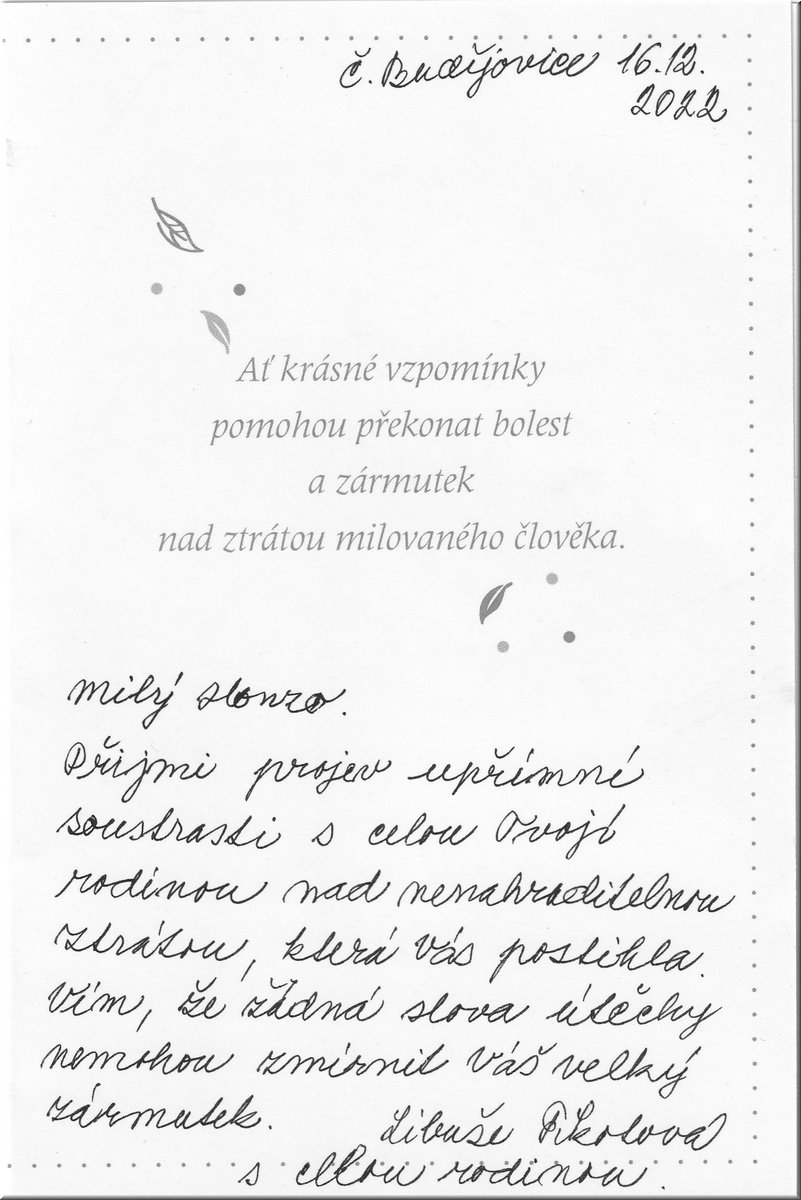 Č. Budějovice 16.12.
2022
Ať krásné vzpomínky
pomohou překonat bolest
a zármutek
nad ztrátou milovaného člověka.
Milý
Přijmi projev upřímné
soustrasti s celou Tvojí
rodinou nad nenahraditelnou
ztrátou, která Vás postihla.
Vím, že žádná slova útěchy
nemohou zmírnit Váš velký
zármutek.
Libuše
s celou rodinou.